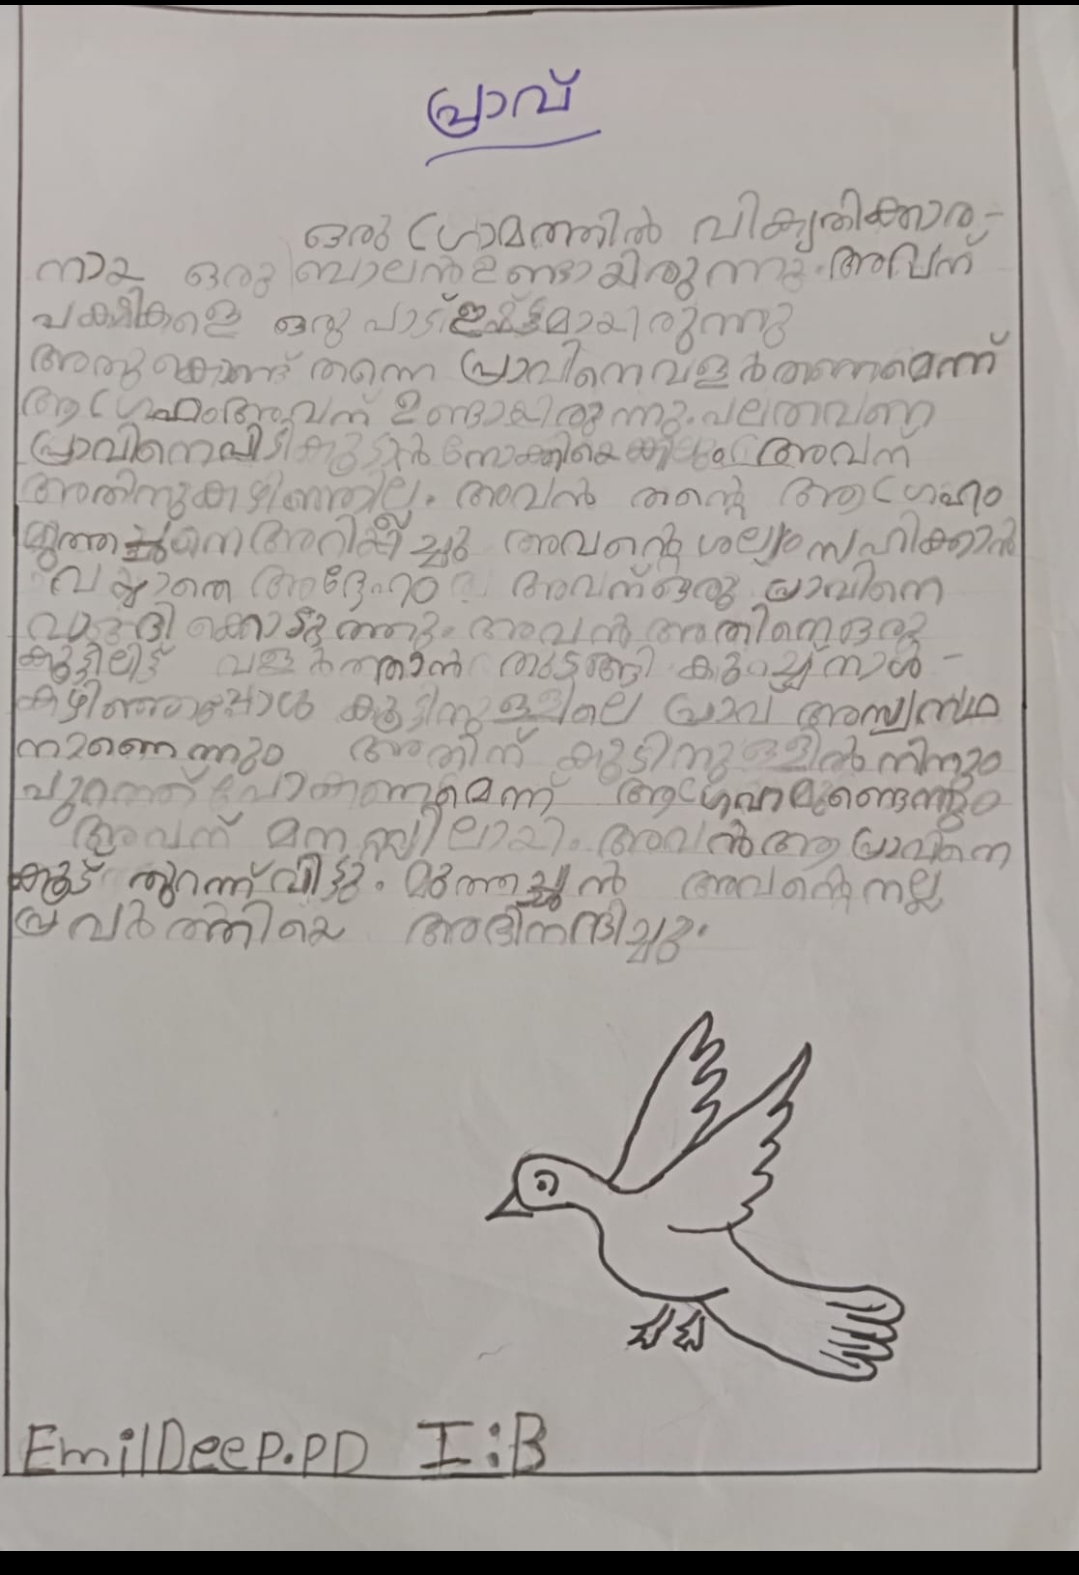 പ്രാവ്
ഒരു ഗ്രാമത്തിൽ വികൃതിക്കാര-
നായ ഒരു ബാലൻ ഉണ്ടായിരുന്നു. അവന്
പക്ഷികളെ ഒരു പാട് ഇഷ്ട്ടമായിരുന്നു
അതുകൊണ്ട് തന്നെ പ്രാവിനെ വളർത്തണമെന്ന്
ആഗ്രഹം അവന് ഉണ്ടായിരുന്നു. പലതവണ
പ്രാവിനെ പിടികൂടാൻ നോക്കിയെങ്കിലും അവന്
അതിനു കഴിഞ്ഞില്ല. അവൻ തന്റെ ആഗ്രഹം
മുത്തച്ചനെ അറിയിച്ചു അവന്റെ ശല്യം സഹിക്കാൻ
വയ്യാതെ അദ്ദേഹം അവന് ഒരു പ്രാവിനെ
വാങ്ങി ക്കൊടുത്തു. അവൻ അതിനെ ഒരു
കൂട്ടിലിട്ട് വളർത്താൻ തുടങ്ങി കുറച്ച് നാൾ-
കഴിഞ്ഞപ്പോൾ കൂട്ടിനുള്ളിലെ പ്രാവ് അസ്വസ്ഥ
നാണെന്നും അതിന് കൂട്ടിനുള്ളിൽ നിന്നും
പുറത്ത് പോകണമെന്ന് ആഗ്രഹമുണ്ടെന്നും
അവന് മനസ്സിലായി. അവൻ ആ പ്രാവിനെ
കൂട് തുറന്ന് വിട്ടു. മുത്തച്ചൻ അവന്റെ നല്ല
പ്രവർത്തിയെ അഭിനന്ദിച്ചു.
EmilDeep.PD I:B